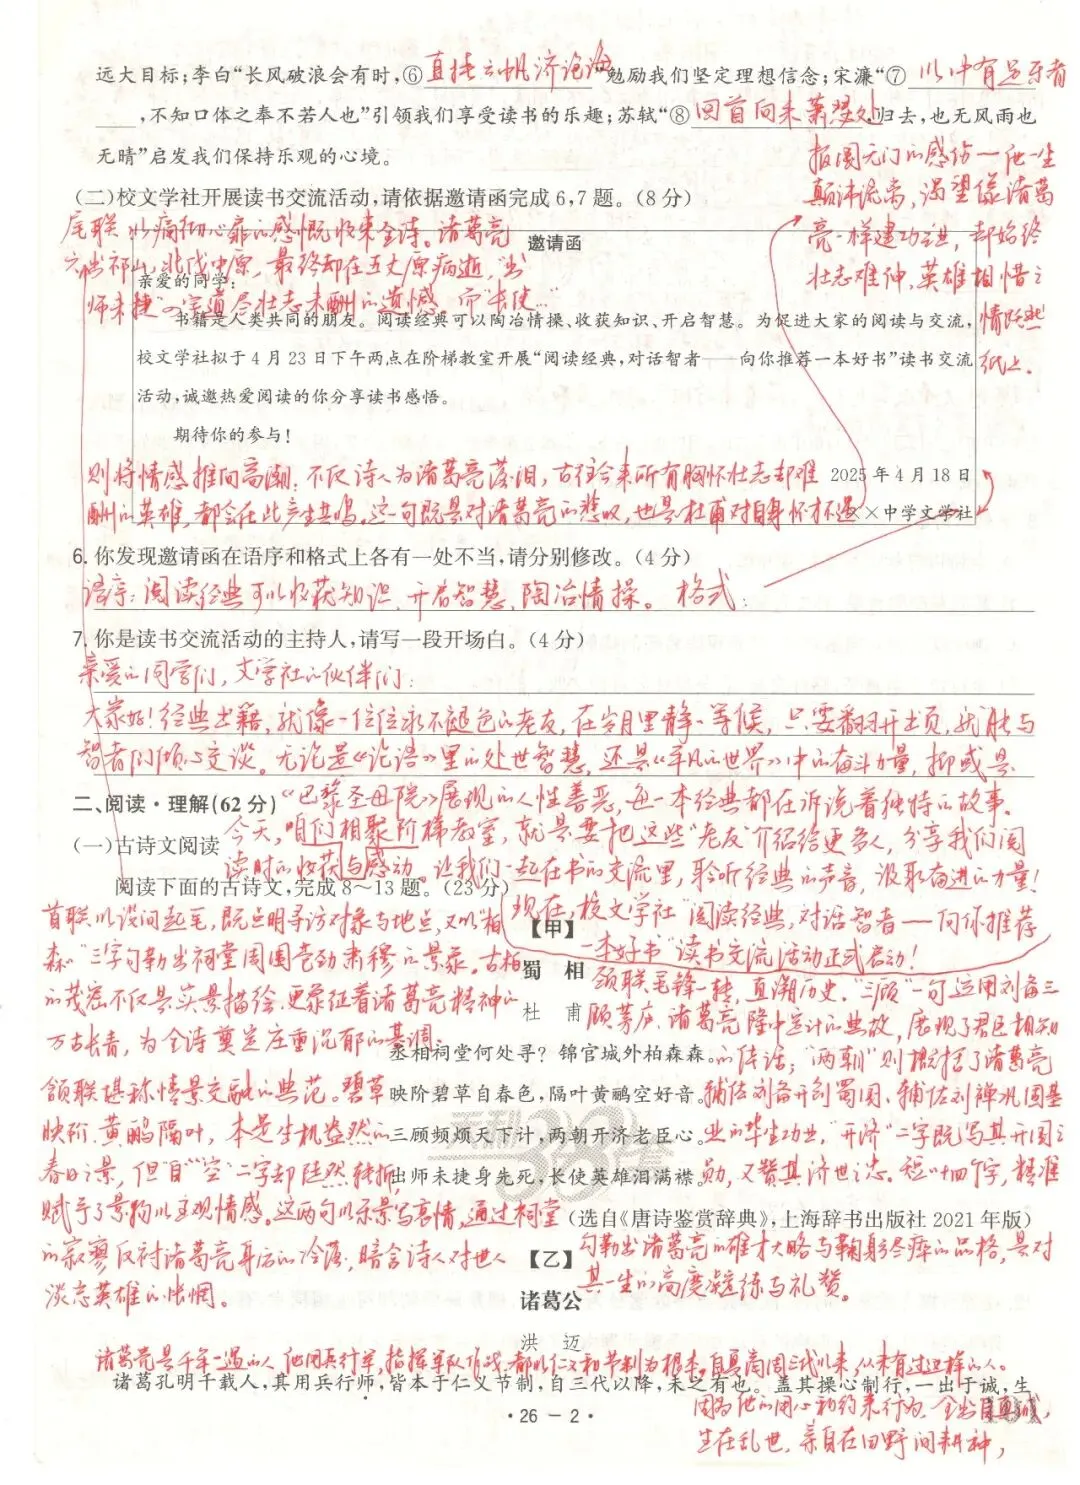 远大目标;李白“长风破浪会有时,⑥直挂云帆济沧海”勉励我们坚定理想信念;宋濂“⑦以中有足乐者
,不知口体之奉不若人也”引领我们享受读书的乐趣;苏轼“⑧回首向来萧瑟处,归去,也无风雨也
无晴”启发我们保持乐观的心境。
报国无门的感伤—他一生
颠沛流离,渴望像诸葛
亮一样建功立业,却始终
壮志难伸,英雄相惜之
情跃然
纸上。
(二)校文学社开展读书交流活动,请依据邀请函完成6,7题。(8分)
尾联以痛彻心扉的感慨收束全诗。诸葛亮
六出祁山,北伐中原,最终却在五丈原病逝,“出
师未捷”四字道尽壮志未酬的遗憾。而“长使…”
邀请函
亲爱的同学:
书籍是人类共同的朋友。阅读经典可以陶冶情操、收获知识、开启智慧。为促进大家的阅读与交流,
校文学社拟于4月23日下午两点在阶梯教室开展“阅读经典,对话智者——向你推荐一本好书”读书交流
活动,诚邀热爱阅读的你分享读书感悟。
期待你的参与!
则将情感推向高潮:不仅诗人为诸葛亮落泪,古往今来所有胸怀壮志却难
2025年4月18日
酬的英雄,都会在此产生共鸣。这一句既是对诸葛亮的悲叹,也是杜甫对自身怀才不遇
××中学文学社
6.你发现邀请函在语序和格式上各有一处不当,请分别修改。(4分)
语序:阅读经典可以收获知识、开启智慧、陶冶情操。 格式:
7.你是读书交流活动的主持人,请写一段开场白。(4分)
亲爱的同学们,文学社的伙伴们:
大家好!经典书籍,就像一位位永不褪色的老友,在岁月里静静等候,只要翻开书页,就能与
智者们倾心交谈。无论是《论语》里的处世智慧,还是《平凡的世界》中的奋斗力量,抑或是
二、阅读·理解(62分)
《巴黎圣母院》展现的人性善恶,每一本经典都在诉说着独特的故事。
(一)古诗文阅读
今天,咱们相聚阶梯教室,就是要把这些“老友”介绍给更多人,分享我们阅
读时的收获与感动。让我们一起在书的交流里,聆听经典的声音,汲取奋进的力量!
阅读下面的古诗文,完成8~13题。(23分)
现在,校文学社“阅读经典,对话智者——向你推荐
一本好书”读书交流活动正式启动!
首联以设问起笔,既点明寻访对象与地点,又以“柏
森森”三字勾勒出祠堂周围苍劲肃穆的景象。古柏
的茂密不仅是实景描绘,更象征着诸葛亮精神的
万古长青,为全诗奠定庄重沉郁的基调。
【甲】
蜀 相
杜 甫
丞相祠堂何处寻?锦官城外柏森森。
映阶碧草自春色,隔叶黄鹂空好音。
三顾频烦天下计,两朝开济老臣心。
出师未捷身先死,长使英雄泪满襟。
(选自《唐诗鉴赏辞典》,上海辞书出版社2021年版)
颔联堪称情景交融的典范。碧草
映阶、黄鹂隔叶,本是生机盎然的
春日之景,但“自”“空”二字却陡然转折,
赋予了景物以主观情感。这两句以乐景写哀情,通过祠堂
的寂寥反衬诸葛亮身后的冷落,暗含诗人对世人
淡忘英雄的怅惘。
颈联笔锋一转,直溯历史。“三顾”一句运用刘备三
顾茅庐、诸葛亮隆中定计的典故,展现了君臣相知
的佳话;“两朝”则概括了诸葛亮
辅佐刘备开创蜀国、辅佐刘禅巩固基
业的毕生功业,“开济”二字既写其开国之
勋,又赞其济世之志。短短十四个字,精准
勾勒出诸葛亮的雄才大略与鞠躬尽瘁的品格,是对
其一生的高度凝练与礼赞。
【乙】
诸葛公
洪 迈
诸葛亮是千年一遇的人,他用兵行军,指挥军队作战,都以仁义和节制为根本,自夏商周三代以来,从未有过这样的人。
诸葛孔明千载人,其用兵行师,皆本于仁义节制,自三代以降,未之有也。盖其操心制行,一出于诚,生
因为他的用心和约束行为,全出自真诚,
生在乱世,亲自在田野间耕种,
·26-2·